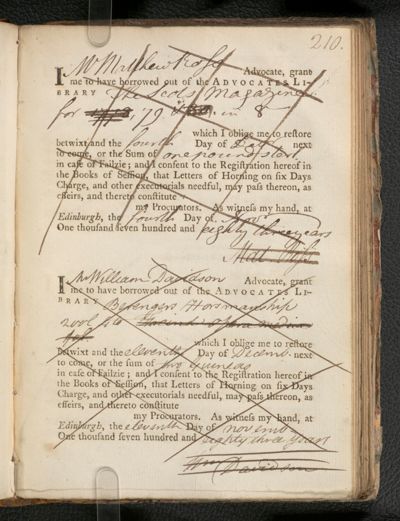 210.
I Mr Matthew Ross Advocate, grant
me to have borrowed out of the ADVOCATES LI-
BRARY The Scots Magazine
for 79 in 8
which I oblige me to restore
betwixt and the fourth Day of next
to come, or the Sum of one pound ster
in case of Failzie; and I consent to the Registration hereof in
the Books of Session, that Letters of Horning on six Days
Charge, and other executorials needful, may pass thereon, as
effeirs, and thereto constitute
my Procurators. As witness my hand, at
Edinburgh, the fourth Day of Novr
One thousand seven hundred and eighty three years
Matt Ross
I Mr William Davidson Advocate, grant
me to have borrowed out of the ADVOCATES LI-
BRARY Berengers Horsmanship
2 vol
which I oblige me to restore
betwixt and the eleventh Day of Decemb. next
to come, or the sum of two guineas
in case of Failzie; and I consent to the Registration hereof in
the Books of Session, that Letters of Horning on six Days
Charge, and other executorials needful, may pass thereon, as
effeirs, and thereto constitute
my Procurators. As witness my hand, at
Edinburgh, the eleventh Day of novemb
One thousand seven hundred and eighty three years
Wm Davidson